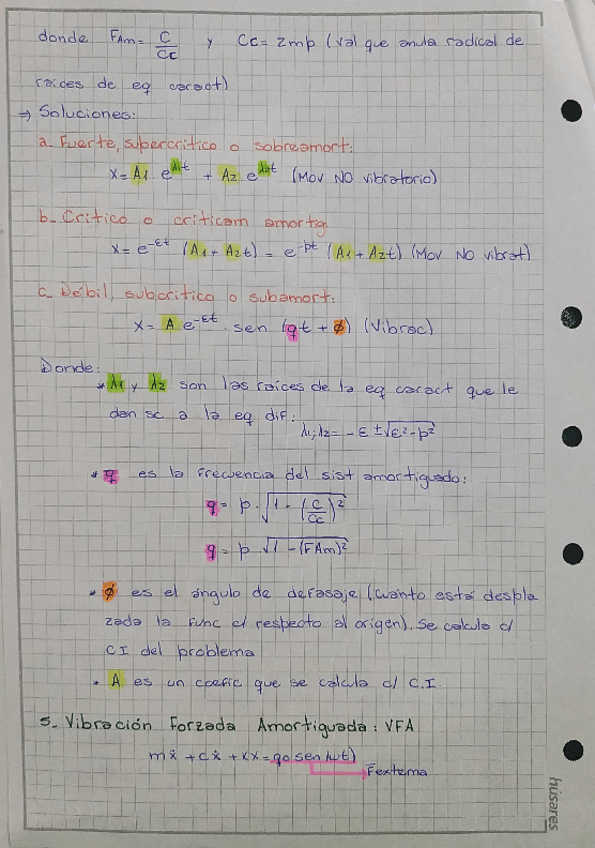 donde FAm = C/Cc y Cc = 2mp (val que anula radical de
raíces de eq caract)
⇒ Soluciones:
a. Fuerte, supercrítico o sobreamort:
x = A1 e^λ1t + A2 e^λ2t (Mov NO vibratorio)
b. Crítico o criticam amortig.
x = e^-εt (A1 + A2t) = e^-pt (A1 + A2t) (Mov NO vibrat)
c. Débil, subcrítico o subamort:
x = A e^-εt . sen (qt + ϕ) (Vibrac)
Donde:
* λ1 y λ2 son las raíces de la eq caract que le
dan sc a la eq dif:
λ1; λ2 = -ε ± √ε²-p²
* q es la frecuencia del sist amortiguado:
q = p . √1 - (C/Cc)²
q = p . √1 - (FAm)²
* ϕ es el ángulo de defasaje (cuánto está despla
zada la func c/ respecto al origen). Se calcula c/
CI del problema
* A es un coefic que se calcula c/ C.I.
5. Vibración Forzada Amortiguada: VFA
mẍ + cẋ + kx = qo sen (wt)
Fexterna
húsares